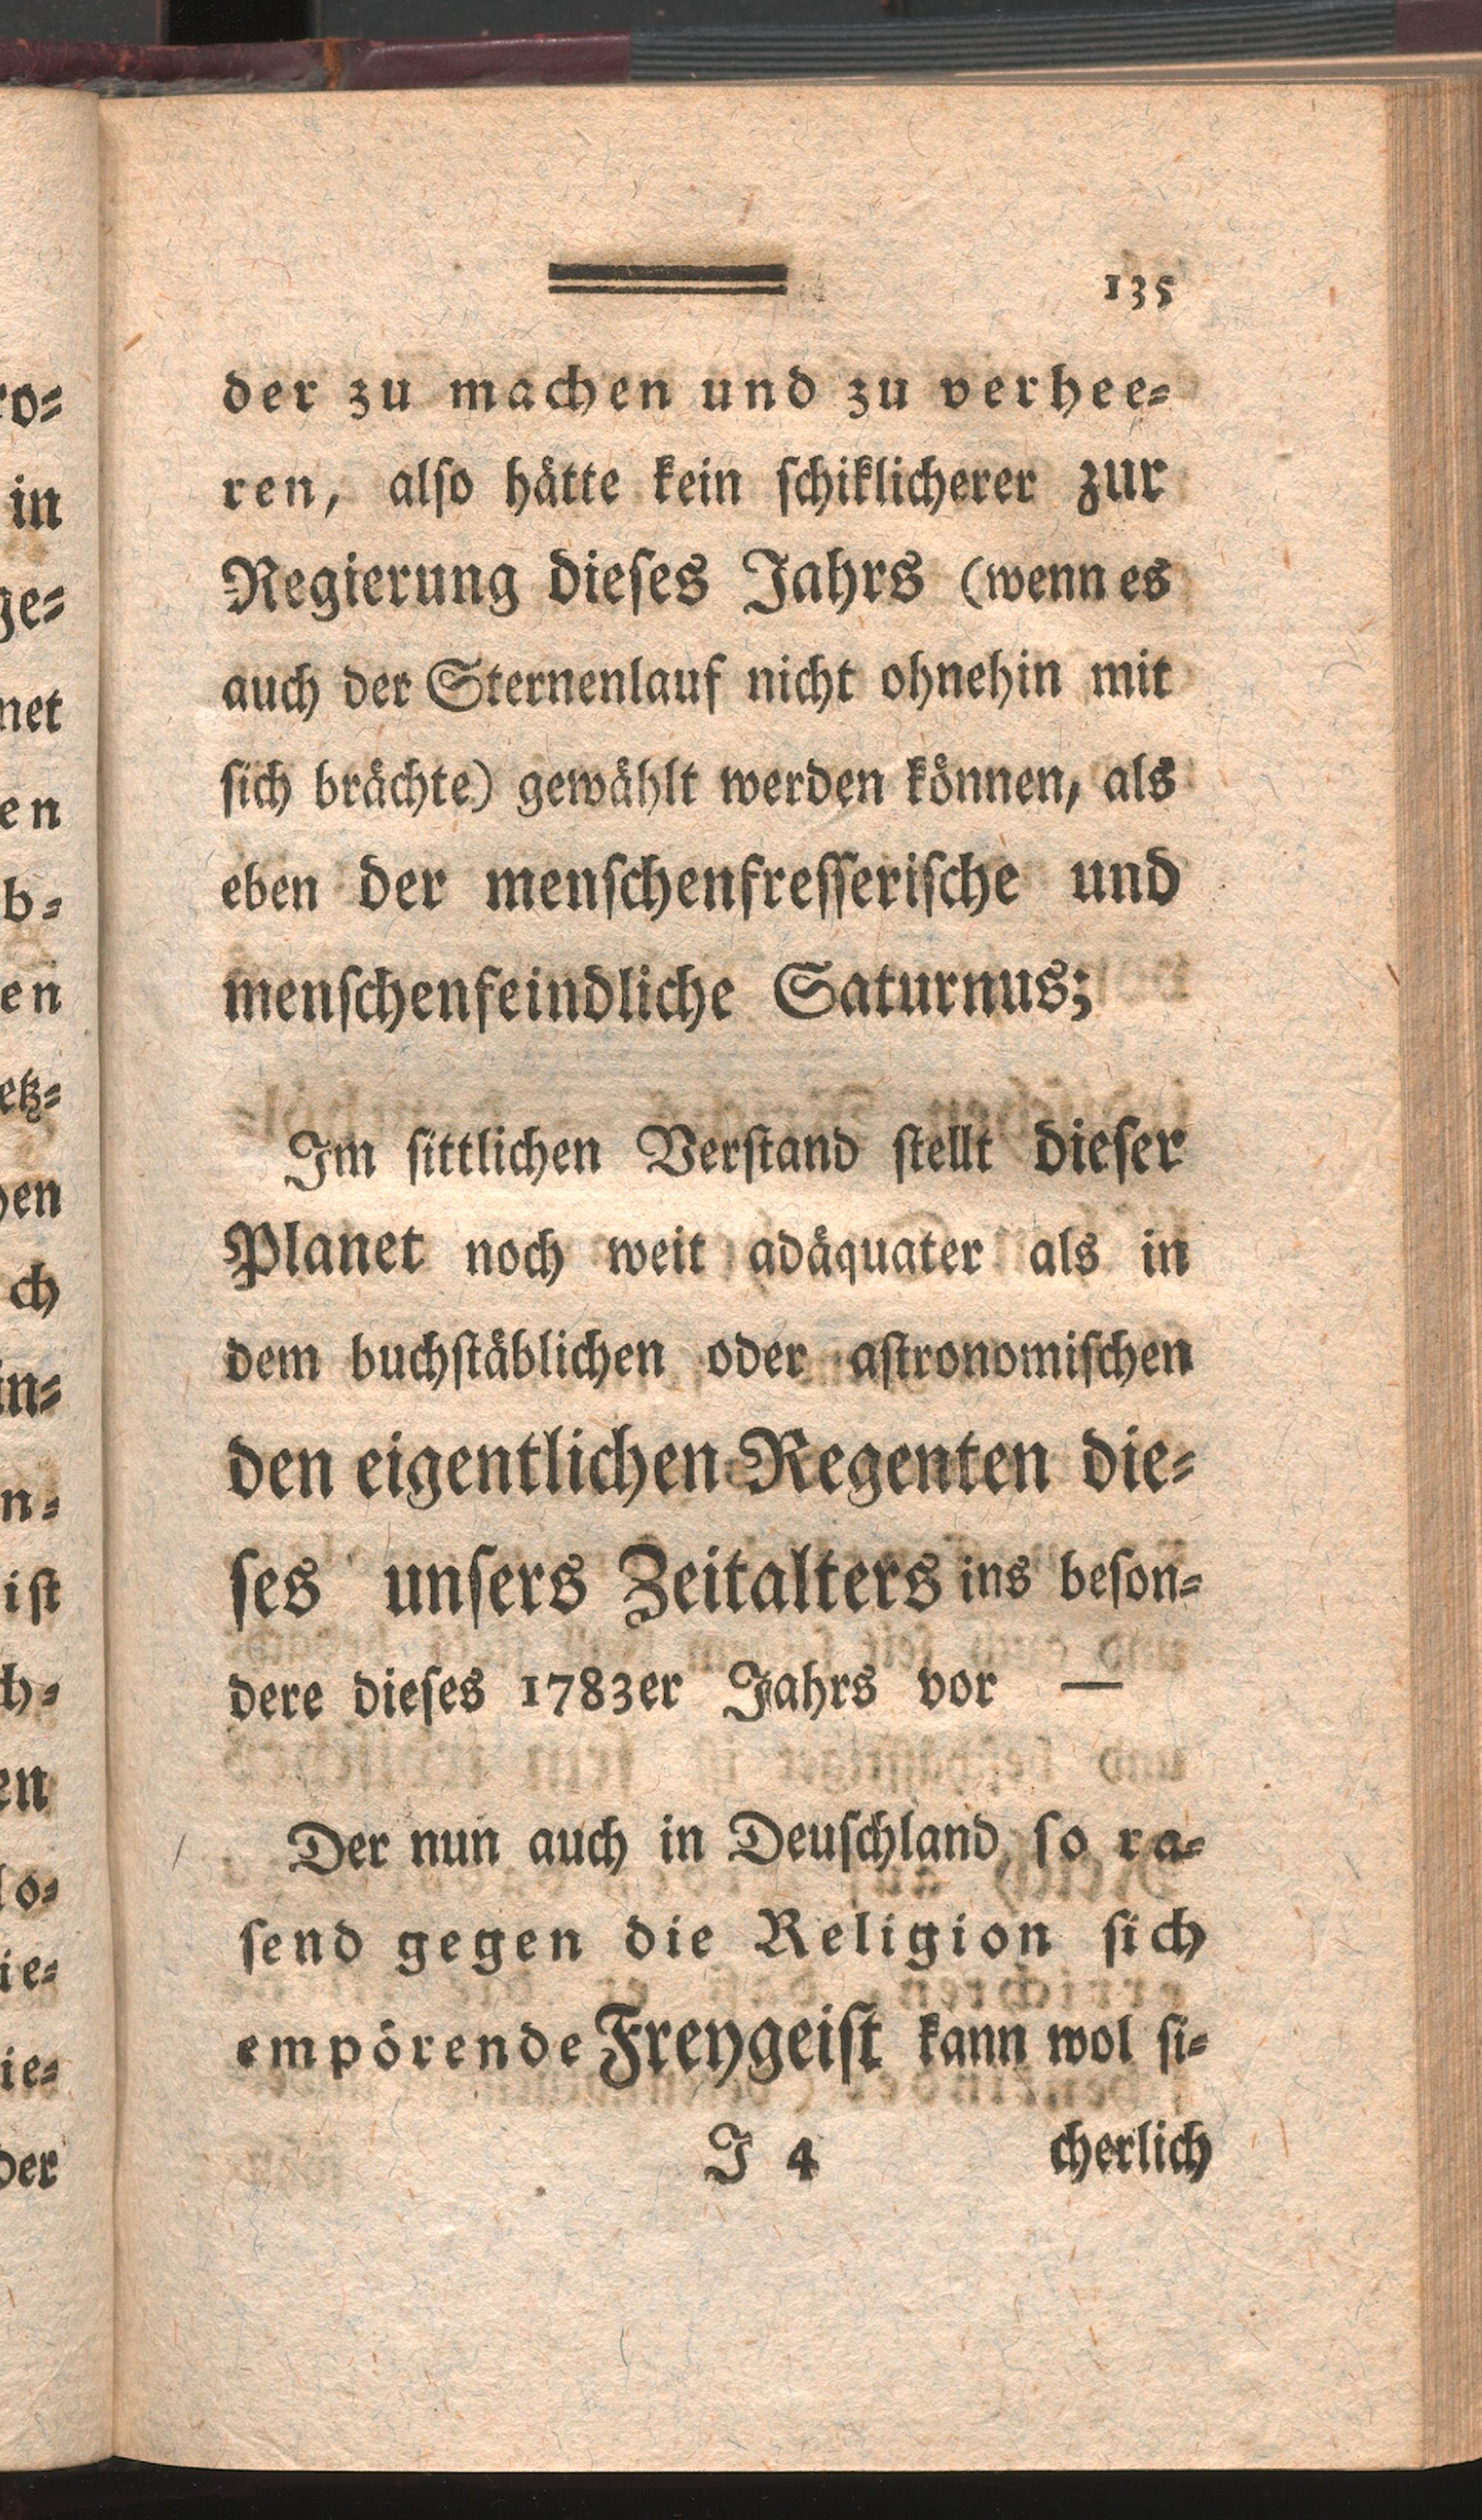 135
der zu machen und zu verhee-
ren, also hätte kein schiklicherer zur
Regierung dieses Jahrs (wenn es
auch der Sternenlauf nicht ohnehin mit
sich brächte) gewählt werden können, als
eben der menschenfresserische und
menschenfeindliche Saturnus;
Im sittlichen Verstand stellt dieser
Planet noch weit adäquater als in
dem buchstäblichen oder astronomischen
den eigentlichen Regenten die-
ses unsers Zeitalters ins beson-
dere dieses 1783er Jahrs vor —
Der nun auch in Deuschland so ra-
send gegen die Religion sich
empörende Freygeist kann wol si-
J 4 cherlich